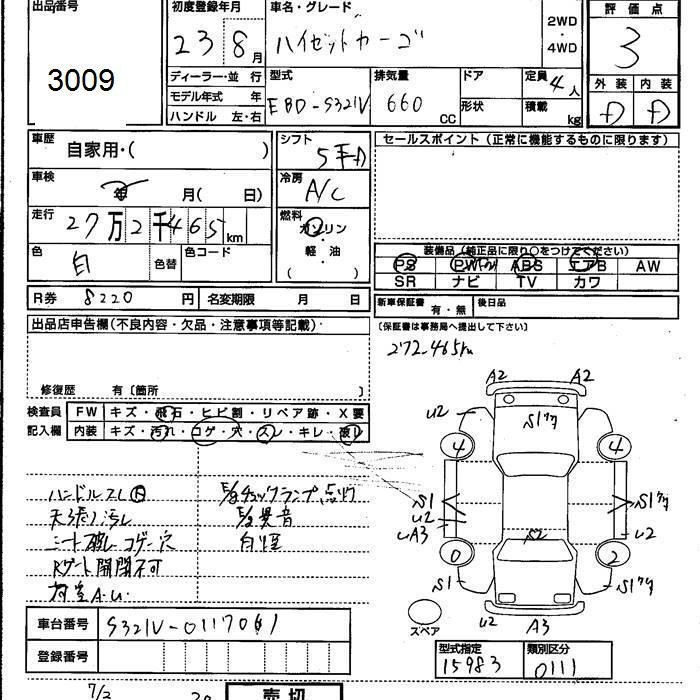 出品番号
3009
初度登録年月
23 8月
車名・グレード
ハイゼットカーゴ
2WD
・
4WD
評価点
3
外装 内装
D D
ディーラー・並 行
モデル年式 年
ハンドル 左・右
型式
EBD-S321V
排気量
660
CC
ドア
形状
定員 4人
積載 kg
車歴
自家用・( )
車検
年 月( 日)
走行
27万2千465km
色
白
色替
色コード
シフト
5
冷房
A/C
燃料
ガソリン
・
軽 油
( )
セールスポイント(正常に機能するものに限ります)
装備品(純正品に限り○をつけてください)
PS PW ABS エアB AW
SR ナビ TV カワ
R券 8220円
名変期限 月 日
新車保証書 有・無
後日品
(保証書は事務局へ提出して下さい)
出品店申告欄(不良内容・欠品・注意事項等記載)
272,465km
修復歴 有〔箇所 〕
検査員
記入欄
FW キズ・飛石・ヒビ割・リペア跡・X要
内装 キズ・汚れ・コゲ・穴・スレ・キレ・破レ
ハンドルスレ
天張り汚レ
シート破レ コゲ 穴
Rゲート開閉不可
荷室A.U.
E/gチェックランプ点灯
E/g異音
白煙
A2 A2
U2
S1
4 4
S1
U2
UA3
S1
U2
S2
0 2
S1
S1
U2
A3
スペア
車台番号 S321V-0117061
登録番号
型式指定 15983
類別区分 0111
7/2
売切